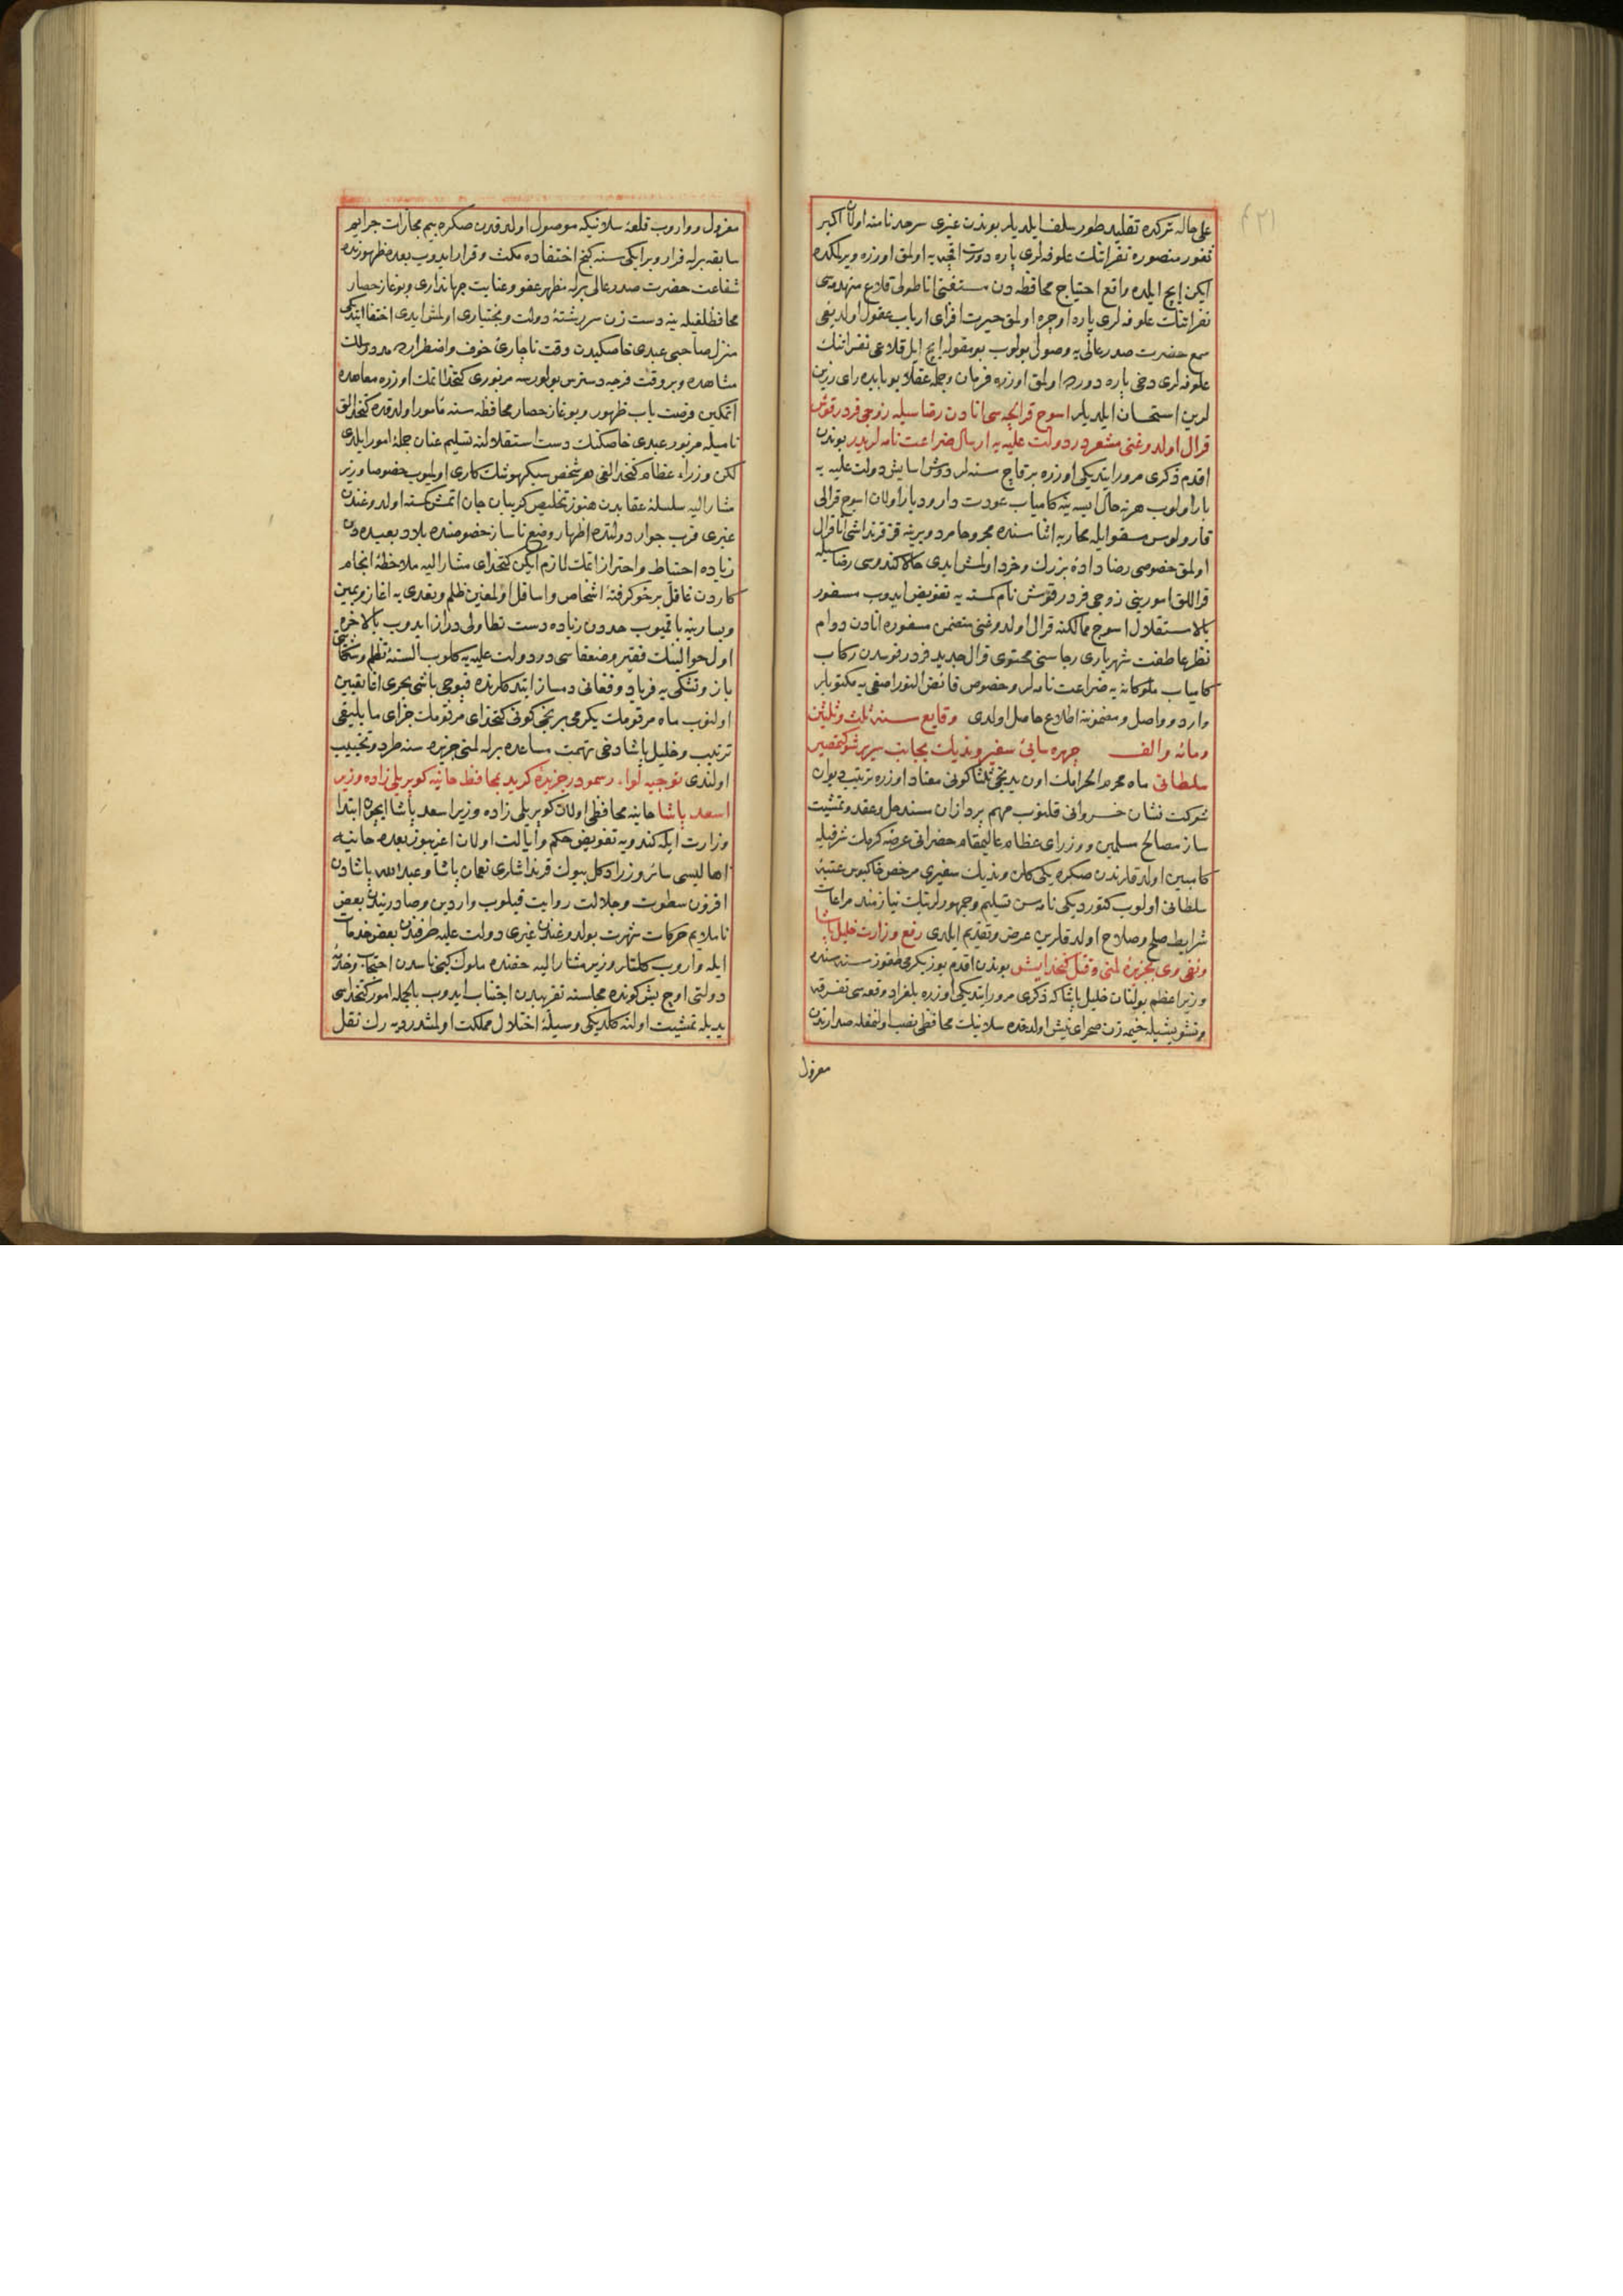 على حاله تركده تقليد طور سلف ايلديلر بوندن غيرى سرحد نامنه اولان اكبر
ثغور منصوره نفراتنك علوفه لرى پاره دورت اقچه يه اولمق اوزره ويرلكده
ايكن ايچ ايلده واقع احتياج محافظه دن مستغنى اناطولى قلاع منهدمه سى
نفراتنك علوفه لرى پاره اوچره اولمق حيرت افزاى ارباب عقول اولديغى
سمع حضرت صدر عالى يه وصول بولوب بو مقوله ايچ ايل قلاعى نفراتنك
علوفه لرى دخى پاره دورده اولمق اوزره فرمان وجمله عقلا بو بابده راى رزين
لرين استحسان ايلديلر اسوج قرالچه سى انادن رضاسيله زوجى فردرقوش
قرال اولدوغنى مشعر در دولت عليه يه ارسال ضراعت نامه لريدر بوندن
اقدم ذكرى مرور ايتديكى اوزره بر قاچ سنه لر دوش اسايش دولت عليه يه
بار اولوب هر نه حال ايسه ينه كامياب عودت دار وديار اولان اسوج قرالى
قارولوس مسقو ايله محاربه اثناسنده مجروحا مرد ويرينه قز قرنداشى انا قرال
اولمق خصوصى رضا دادۀ بزرك وخرد اولمش ايدى حالا كندوسى رضاسيله
قراللق امورينى زوجى فردرقوش نام كمسنه يه تفويض ايدوب مسفور
بالاستقلال اسوج ممالكنه قرال اولدوغنى متضمن مسفوره انادن دوام
نظر عاطفت شهريارى رجاسنى محتوى قرال جديد فردرقوسدن ركاب
كامياب ملوكانه يه ضراعت نامه لر وحضور فائض النور اصفى يه مكتوبلر
وارد وواصل ومضمونه اطلاع حاصل اولدى وقايع سنه ثلث وثلثين
ومائه والف چهره سائ سفير ونديك بجانب سرير شوكتمصير
سلطانى ماه محرم الحرامك اون يدنجى ثلثا كونى معتاد اوزره ترتيب ديوان
شوكت نشان خسروانى قلنوب مهم پردازان مسند حل وعقد وتمشيت
ساز مصالح مسلمين ووزراى عظام عاليمقام حضراتى عرضه كرملك شرفيله
كامبين اولدقلرندن صكره يكى كلن ونديك سفيرى مرخص خاكبوس عتبۀ
سلطانى اولوب كتورديكى نامه سن تسليم وجمهورلرينك نيازمند مراعات
شرايط صلح وصلاح اولدقلرين عرض وتقديم ايلدى رفع وزارت خليل پاشا
ونفى وى بجزيرۀ لمنى وقتل كتخدايش بوندن اقدم يوز يكرمى طقوز سنه سنده
وزير اعظم بولنان خليل پاشا كه ذكرى مرور ايتديكى اوزره بلغراد وقعه سى تفرقه
وتشويشيله خيمه زن صحراى نيش اولدقده سلانيك محافظى نصب اولنمغله صدارتدن
معزول
معزول وواروب قلعۀ سلانيكه موصول اولدقدن صكره بيم مجازات جرايم
سابقه برله فرار وبر ايكى سنه كنج اختفاده مكث وقرار ايدوب بعده ظهورنده
شفاعت حضرت صدر عالى برله مظهر عفو وعنايت جهاندارى وبوغاز حصار
محافظلغيله ينه دست زن سررشتۀ دولت وبختيارى اولمش ايدى اختفا ايتديكى
منزل صاحبى عبدى خاصكيدن وقت ناچارئ خوف واضطرارده مدد ودلالت
مشاهده وبر وقت فرجه دسترس بولورسه مزبورى كتخدا اتمك اوزره معاهده
اتمكين فرصت ياب ظهور وبوغاز حصار محافظه سنه مأمور اولدقده كتخدالق
ناميله مزبور عبدى خاصكنك دست استقلالنه تسليم عنان جملۀ امور ايلدى
لكن وزراء عظام كتخدالغى هر شخص سبكهوشك كارى اولميوب خصوصا وزير
مشار اليه سلسلۀ عقابدن هنوز تخليص كريبان جان اتمش كمسنه اولدوغندن
غيرى قرب جوار دولتده اظهار وضع ناساز خصوصنده بلاد بعيده دن
زياده احتياط واحتراز اتمك لازم ايكن كتخداى مشار اليه ملاحظۀ انجام
كاردن غافل بر خو كرفتۀ اشخاص واسافل اولمغين ظلم وتعدى يه اغاز ويمين
ويسارينه باقميوب حددن زياده دست تطاولى دراز ايدوب بالاخره
اول حوالينك فقير وضعفاسى در دولت عليه يه كلوب السنۀ تظلم وشكايتى
باز وتشكى يه فرياد وفغانى دمساز ايتدكلرنده قپوجى باشى بحرى اغا تعيين
اولنوب ماه مرقومك يكرمى برنجى كونى كتخداى مرقومك جزاى ما يليقى
ترتيب وخليل پاشا دخى تهمت مساعده برله لمنى جزيره سنه طرد وتخييب
اولندى توجيه لواء رسمو در جزيرۀ كريد بمحافظ حانيه كوپريلى زاده وزير
اسعد پاشا حانيه محافظى اولان كوپريلى زاده وزير اسعد پاشا ايچون ابتدا
وزارت ايله كندويه تفويض حكم وايالت اولان اغريبوز بعده حانيه
اهاليسى سائر وزرا دكل بيوك قرنداشلرى نعمان پاشا وعبدالله پاشادن
افزون سطوت وجلالت روايت قيلوب واردين وصادريندن بعض
ناملايم حركات شهرت بولدوغندن غيرى دولت عليه طرفندن بعض خدمات
ايله واروب كلنلر وزير مشار اليه حقنده ملوك كبى ناسدن احتجاب وخدمۀ
دولتى اوچ بش كونده مجلسنه تقريبدن اجتناب ايدوب بالجمله امور كتخداسى
يديله تمشيت اولنه كلديكى وسيلۀ اختلال مملكت اولمشدر ديه رك نقل